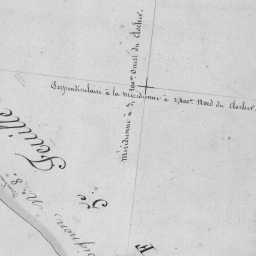 Perpendiculaire à la méridienne à 2,400m Nord du clocher.
Méridienne à 5,700m Ouest du clocher.
Feuille
5e
No. 8.
F